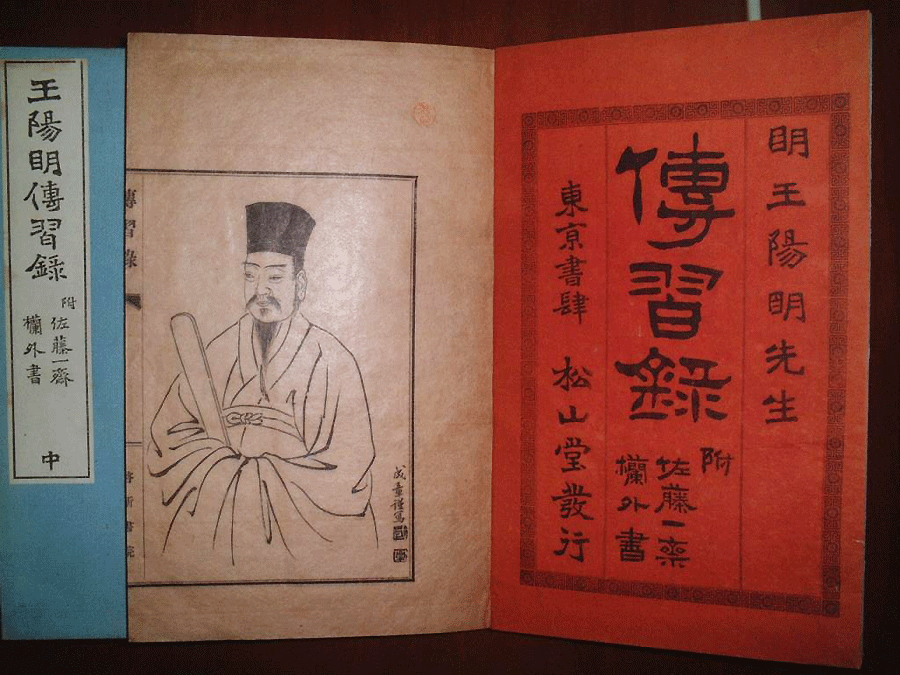 王陽明傳習錄
附
佐藤一齋
欄外書
中
傳習錄
成章謹寫
明王陽明先生
傳習錄
附
佐藤一齋
欄外書
東京書肆 松山堂發行